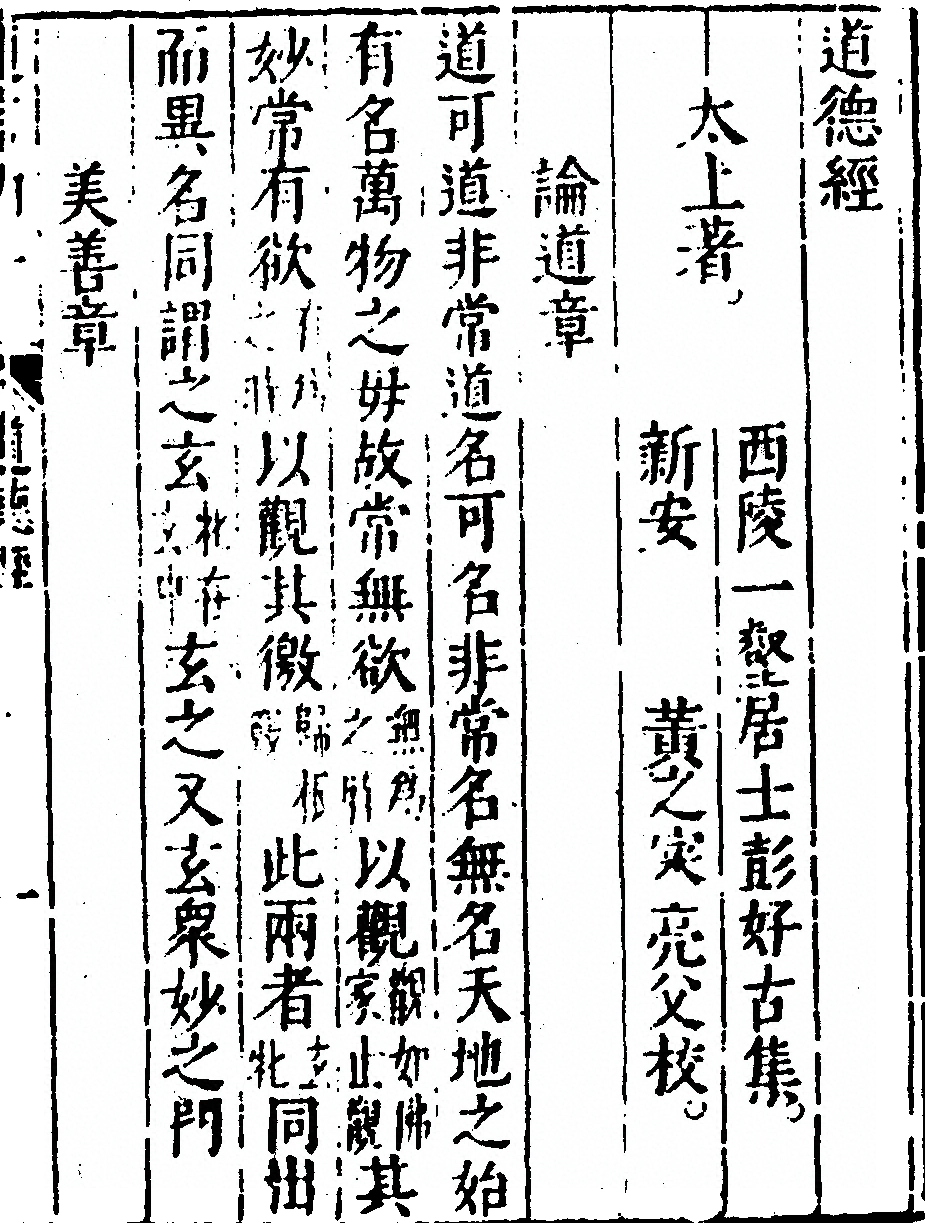 道德經
太上著
西陵一壑居士彭好古集
新安 黃之寀亮父校
論道章
道可道非常道名可名非常名無名天地之始
有名萬物之母故常無欲無為之時以觀觀如佛家止觀其
妙常有欲有為之時以觀其徼歸根竅此兩者玄牝同出
而異名同謂之玄牝在玄中玄之又玄眾妙之門
美善章
道德經
一